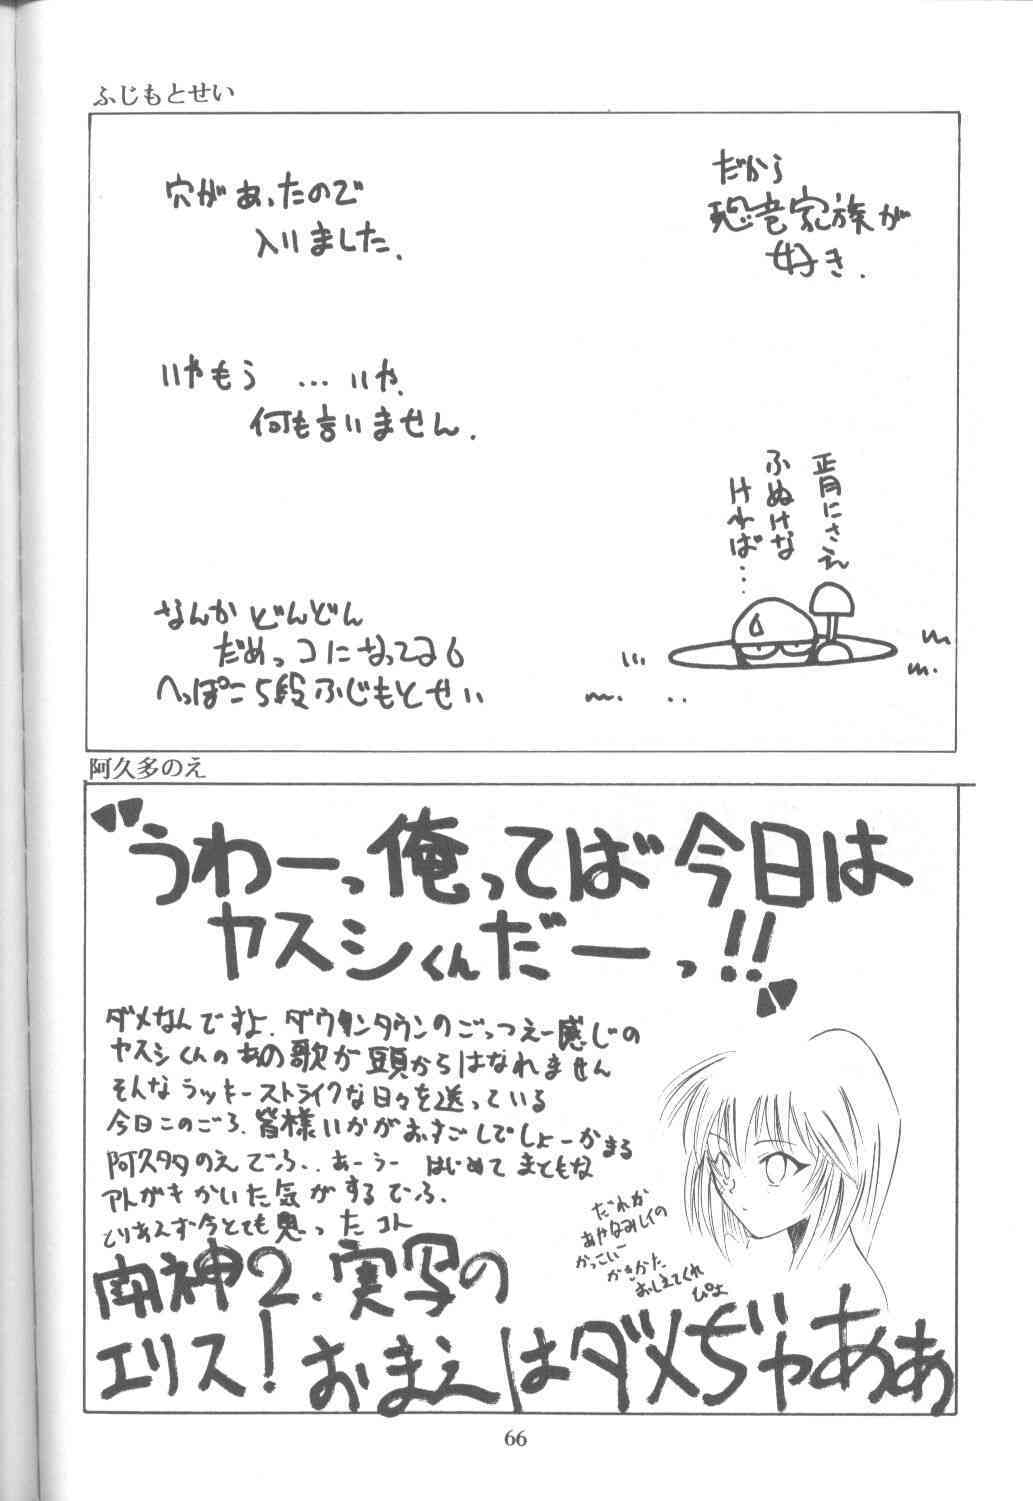 ふじもとせい
だから
恐竜家族が
好き.
穴があったので
入りました.
いやもう …いや.
何も言いません.
正月にさえ
ふぬけな
ければ…
なんかどんどん
だめっコになってる
へっぽこ5段ふじもとせい
阿久多のえ
"うわーっ俺ってば今日は
ヤスシくんだーっ!!"
ダメなんですよ.ダウンタウンのごっつえー感じの
ヤスシくんのあの歌が頭からはなれません
そんなラッキーストライクな日々を送っている
今日このごろ.皆様いかがおすごしでしょーかまる
阿久多のえでふ..あーうー はじめてまともな
アトがキかいた気がするでふ.
とりあえず今とても思ったコト
南神2.実写の
エリス!おまえはダメぢゃあぁ
だれか
あやなみレイの
かっこいー
かきかた
おしえてくれ
ぴよ
66